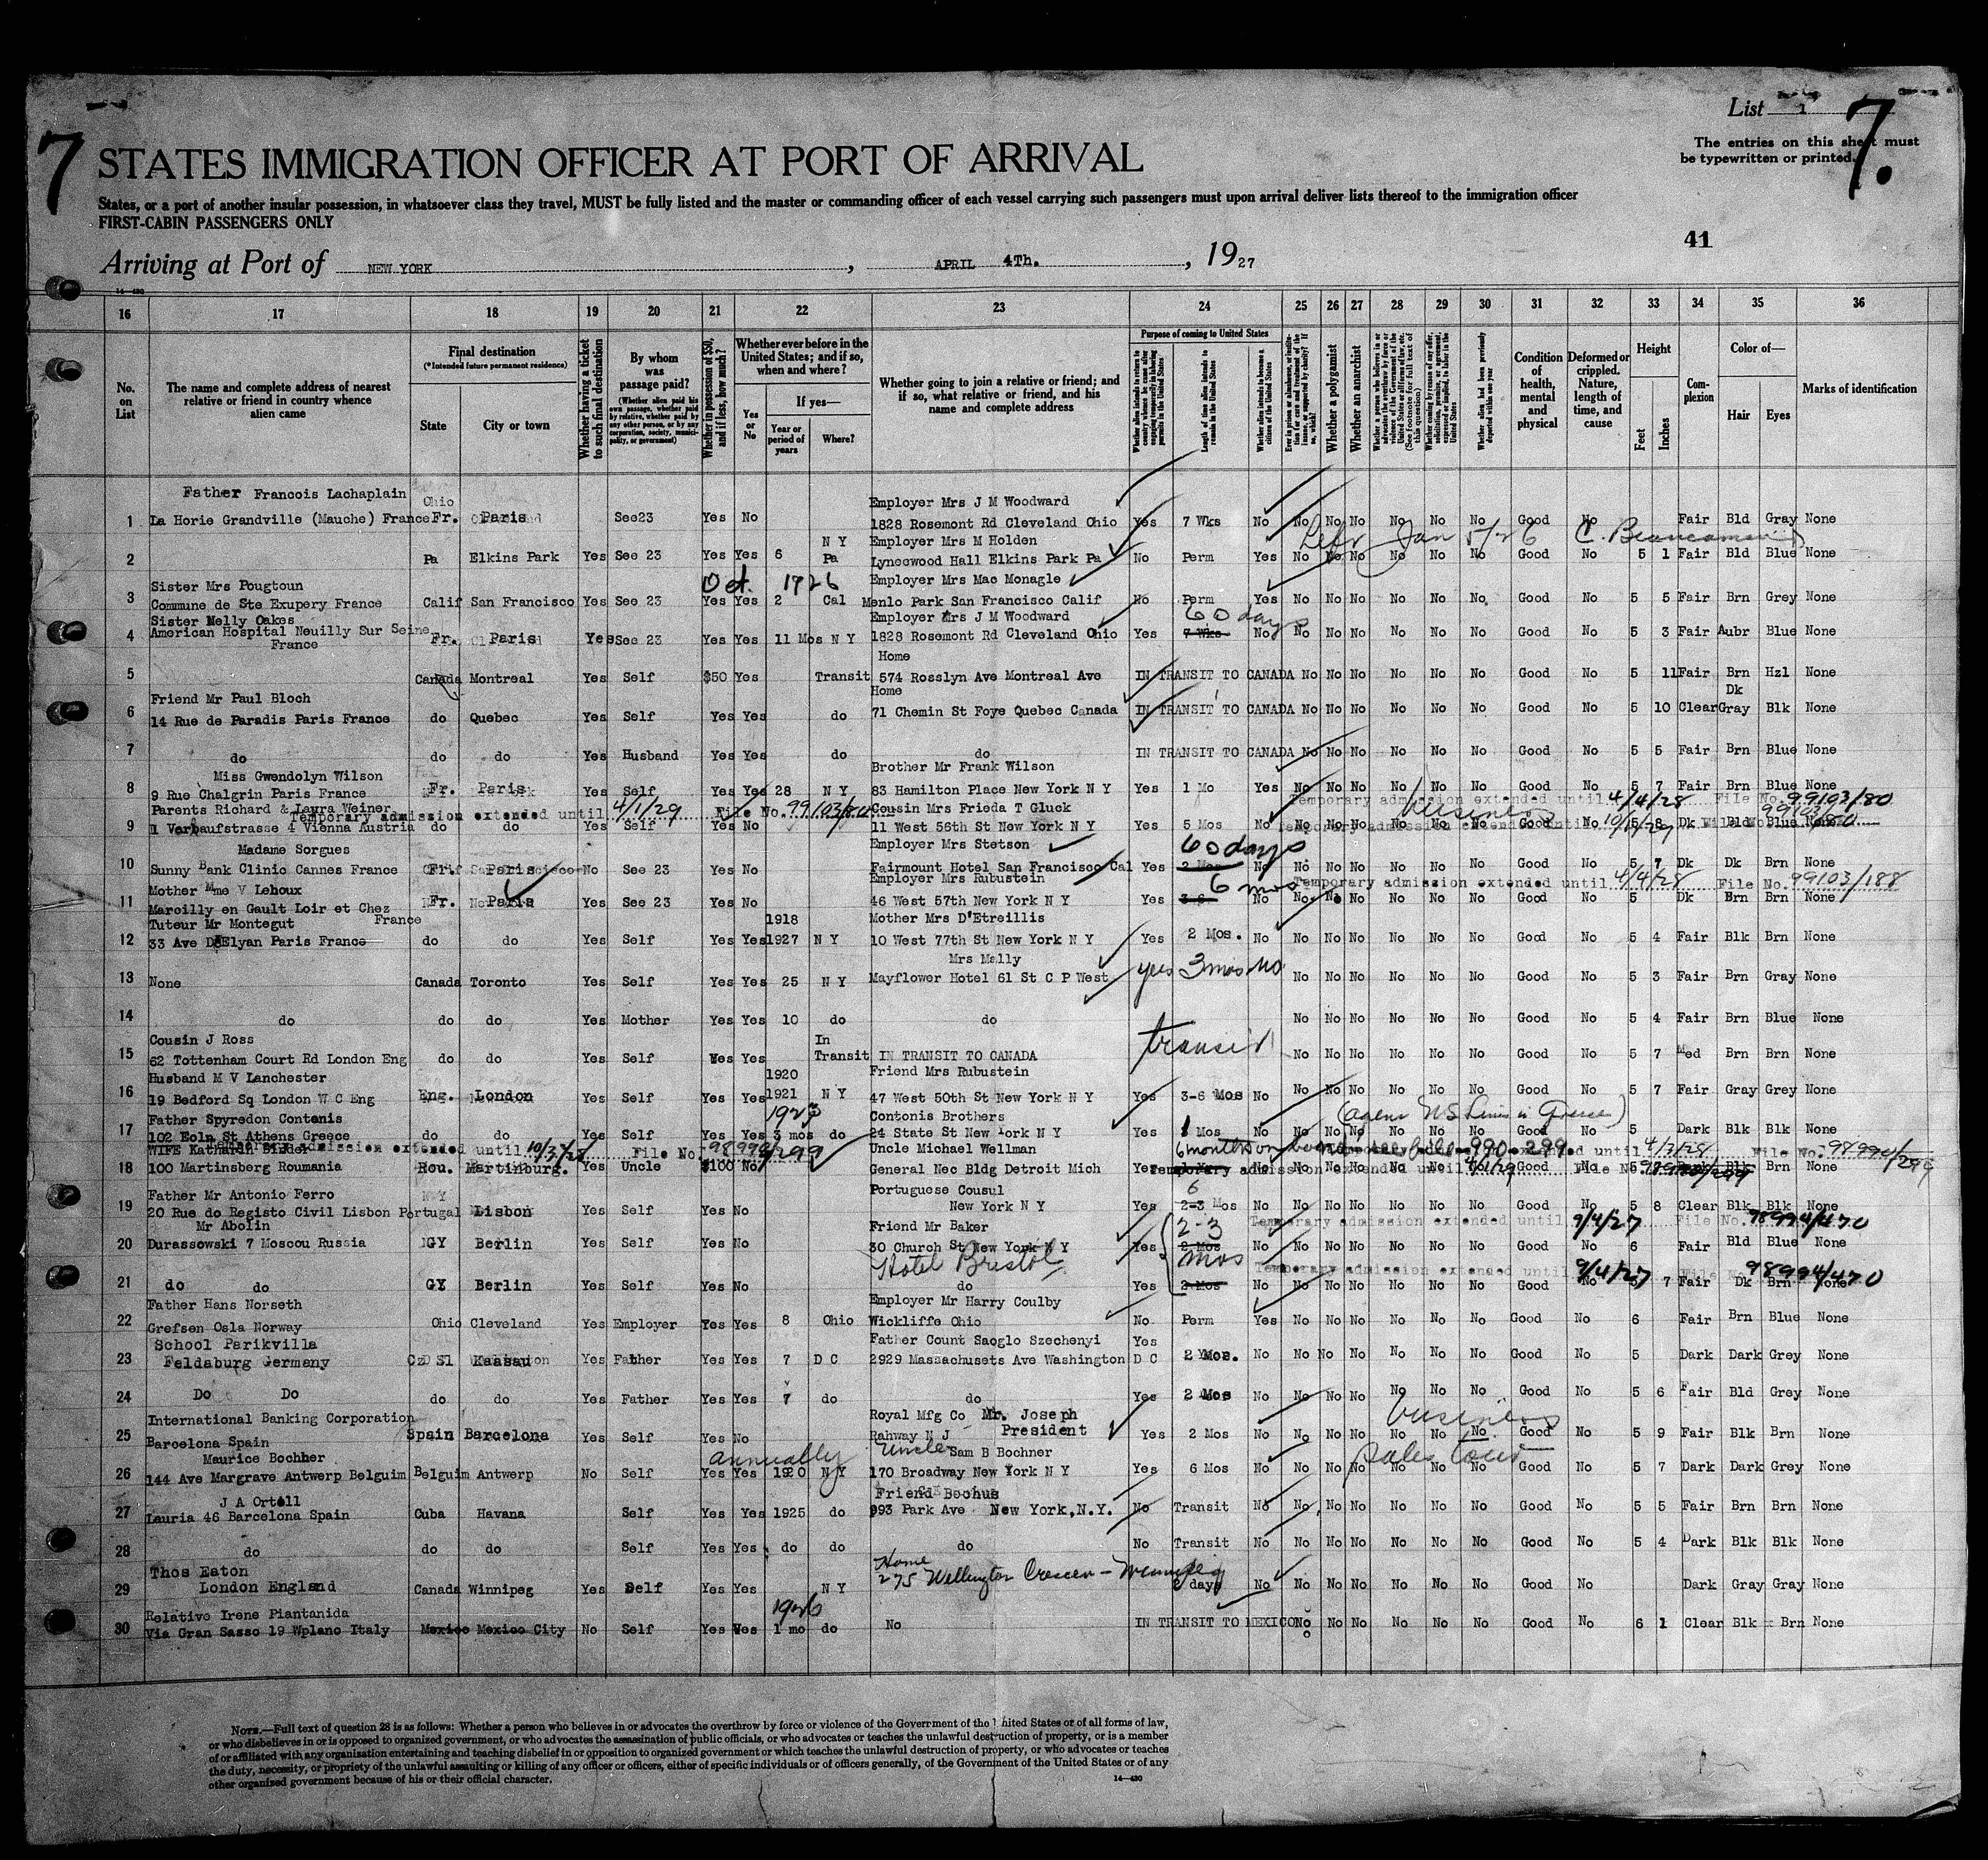 List 1
7
7.
The entries on this sheet must
be typewritten or printed.
STATES IMMIGRATION OFFICER AT PORT OF ARRIVAL
States, or a port of another insular possession, in whatsoever class they travel, MUST be fully listed and the master or commanding officer of each vessel carrying such passengers must upon arrival deliver lists thereof to the immigration officer
FIRST-CABIN PASSENGERS ONLY
41
Arriving at Port of NEW YORK, APRIL 4Th., 1927
14-430
16 17 18 19 20 21 22 23 24 25 26 27 28 29 30 31 32 33 34 35 36
No. on List
The name and complete address of nearest relative or friend in country whence alien came
Final destination
(*Intended future permanent residence)
State
City or town
Whether having a ticket to such final destination
By whom was passage paid?
(Whether alien paid his own passage, whether paid by relative, whether paid by any other person, or by any corporation, society, municipality, or government)
Whether in possession of $50, and if less, how much?
Whether ever before in the United States; and if so, when and where?
Yes or No
If yes—
Year or period of years
Where?
Whether going to join a relative or friend; and if so, what relative or friend, and his name and complete address
Purpose of coming to United States
Whether alien intends to return to country whence he came after engaging temporarily in laboring pursuits in the United States
Length of time alien intends to remain in the United States
Whether alien intends to become a citizen of the United States
Whether a polygamist
Whether an anarchist
Condition of health, mental and physical
Deformed or crippled. Nature, length of time, and cause
Height
Feet
Inches
Complexion
Color of—
Hair
Eyes
Marks of identification
Father Francois Lachaplain Ohio Employer Mrs J M Woodward
1 La Horie Grandville (Mauche) France Fr. Paris See23 Yes No 1828 Rosemont Rd Cleveland Ohio Yes 7 Wks No No No No No No No Good No Fair Bld Gray None
N Y Employer Mrs M Holden Jan 5/26
2 Pa Elkins Park Yes See 23 Yes Yes 6 Pa Lynecwood Hall Elkins Park Pa No Perm Yes No No No No No No Good No 5 1 Fair Bld Blue None
Sister Mrs Pougtoun Oct. 1926 Employer Mrs Mac Monagle
3 Commune de Ste Exupery France Calif San Francisco Yes See 23 Yes Yes 2 Cal Menlo Park San Francisco Calif No Perm Yes No No No No No No Good No 5 5 Fair Brn Grey None
Sister Nelly Oakes Employer Mrs J M Woodward 60 days
4 American Hospital Neuilly Sur Seine France Fr. Paris Yes See 23 Yes Yes 11 Mos N Y 1828 Rosemont Rd Cleveland Ohio Yes 7 Wks No No No No No No No Good No 5 3 Fair Aubr Blue None
Home
5 Canada Montreal Yes Self $50 Yes Transit 574 Rosslyn Ave Montreal Ave IN TRANSIT TO CANADA No No No No No No Good No 5 11 Fair Brn Hzl None
Friend Mr Paul Bloch Home Dk
6 14 Rue de Paradis Paris France do Quebec Yes Self Yes Yes do 71 Chemin St Foye Quebec Canada IN TRANSIT TO CANADA No No No No No No Good No 5 10 Clear Gray Blk None
7 do do do Yes Husband Yes Yes do do IN TRANSIT TO CANADA No No No No No No Good No 5 5 Fair Brn Blue None
Miss Gwendolyn Wilson Brother Mr Frank Wilson
8 9 Rue Chalgrin Paris France Fr. Paris Yes Self Yes Yes 28 N Y 83 Hamilton Place New York N Y Yes 1 Mo Yes No No No No No No Good No 5 7 Fair Brn Blue None
Parents Richard & Leyra Weiner Cousin Mrs Frieda T Gluck Temporary admission extended until 4/4/28 File No. 99103/80
Temporary admission extended until 4/1/29 File No. 99103/80
9 Vienna Austria do do Yes Self Yes No 11 West 56th St New York N Y Yes 5 Mos No No No No No No No Good No 5 8 Dk Bld Blue None
Madame Sorgues Employer Mrs Stetson 60 days
10 Sunny Bank Clinic Cannes France Fr. Paris No See 23 Yes No Fairmount Hotel San Francisco Cal Yes 2 Mos No No No No No No No Good No 5 7 Dk Dk Brn None
Mother Mme V Lehoux Employer Mrs Rubustein 6 mos Temporary admission extended until 4/4/28 File No. 99103/188
11 Marcilly en Gault Loir et Chez France Fr. Paris Yes See 23 Yes No 46 West 57th New York N Y Yes 3-6 No No No No No No No Good No 5 Dk Brn Brn None
Tuteur Mr Montegut 1918 Mother Mrs D'Etreillis
12 33 Ave D'Elyan Paris France do do Yes Self Yes Yes 1927 N Y 10 West 77th St New York N Y Yes 2 Mos. No No No No No No No Good No 5 4 Fair Blk Brn None
Mrs Mally
13 None Canada Toronto Yes Self Yes Yes 25 N Y Mayflower Hotel 61 St C P West yes 3 mos no No No No No No No Good No 5 3 Fair Brn Gray None
14 do do do Yes Mother Yes Yes 10 do do No No No No No No Good No 5 4 Fair Brn Blue None
Cousin J Ross In
15 62 Tottenham Court Rd London Eng do do Yes Self Yes Yes Transit IN TRANSIT TO CANADA transit No No No No No No Good No 5 7 Med Brn Brn None
Husband M V Lanchester 1920 Friend Mrs Rubustein
16 19 Bedford Sq London W C Eng Eng. London Yes Self Yes Yes 1921 N Y 47 West 50th St New York N Y Yes 3-6 Mos No No No No No No No Good No 5 7 Fair Gray Grey None
Father Spyredon Contanis 1923 Contonis Brothers
17 102 Eoln St Athens Greece do do Yes Self Yes Yes 3 mos do 24 State St New York N Y Yes 1 Mos No No No No No No No Good No 5 Dark Blk Blk None
WIFE Katharin Binder admission extended until 10/3/28 File No. 98994/299 Uncle Michael Wellman 6 months 4/3/28 File No. 98994/299
18 100 Martinsberg Roumania Rou. Martinburg. Yes Uncle $100 No General Nec Bldg Detroit Mich Yes Brn None
Father Mr Antonio Ferro Portuguese Cousul 6
19 20 Rue do Registo Civil Lisbon Portugal Lisbon Yes Self Yes No New York N Y Yes 2-3 Mos No No No No No No No Good No 5 8 Clear Blk Blk None
Mr Abolin Friend Mr Baker 2-3 Temporary admission extended until 9/4/27 File No. 98994/470
20 Durassowski 7 Moscou Russia GY Berlin Yes Self Yes No 30 Church St New York N Y Yes 2 Mos No No No No No No No Good No 6 Fair Bld Blue None
Hotel Bristol mos Temporary admission extended until 9/4/27 98994/470
21 do do GY Berlin Yes Self Yes No do Yes 2 Mos No No No No No No No Good No 5 7 Fair Dk Brn None
Father Hans Norseth Employer Mr Harry Coulby
22 Grefsen Osla Norway Ohio Cleveland Yes Employer Yes Yes 8 Ohio Wickliffe Ohio No Perm Yes No No No No No No Good No 6 Fair Brn Blue None
School Parikvilla Father Count Saoglo Szechenyi Yes
23 Feldaburg Germany Cz Sl Kassau Yes Father Yes Yes 7 D C 2929 Massachusets Ave Washington D C 2 Mos. No No No No No No No Good No 5 Dark Dark Grey None
24 Do Do do do Yes Father Yes Yes 7 do do Yes 2 Mos No No No No No No No Good No 5 6 Fair Bld Grey None
International Banking Corporation Royal Mfg Co Mr. Joseph President business
25 Barcelona Spain Spain Barcelona Yes Self Yes No Rahway N J Yes 2 Mos No No No No No No No Good No 5 9 Fair Blk Brn None
Maurice Bochner annually Uncle Sam B Bochner sales tour
26 144 Ave Margrave Antwerp Belguim Belguim Antwerp No Self Yes Yes 1920 N Y 170 Broadway New York N Y Yes 6 Mos No No No No No No No Good No 5 7 Dark Dark Grey None
J A Ortell Friend Bochus
27 Lauria 46 Barcelona Spain Cuba Havana Self Yes Yes 1925 do 993 Park Ave New York,N.Y. No Transit No No No No No No No Good No 5 5 Fair Brn Brn None
28 do do do Self Yes Yes do do do No Transit No No No No No No No Good No 5 4 Dark Blk Blk None
Thos Eaton Home
29 London England Canada Winnipeg Yes Self Yes Yes N Y 275 Wellington Crescen - Winnipeg 2 days No No No No No No No Good No Dark Gray Gray None
Relative Irene Piantanida 1926
30 Via Gran Sasso 19 Wplano Italy Mexico Mexico City No Self Yes Yes 1 mo do No IN TRANSIT TO MEXICO No No No No No No Good No 6 1 Clear Blk Brn None
NOTE.—Full text of question 28 is as follows: Whether a person who believes in or advocates the overthrow by force or violence of the Government of the United States or of all forms of law,
or who disbelieves in or is opposed to organized government, or who advocates the assassination of public officials, or who advocates or teaches the unlawful destruction of property, or is a member
of or affiliated with any organization entertaining and teaching disbelief in or opposition to organized government or which teaches the unlawful destruction of property, or who advocates or teaches
the duty, necessity, or propriety of the unlawful assaulting or killing of any officer or officers, either of specific individuals or of officers generally, of the Government of the United States or of any
other organized government because of his or their official character.
14—430